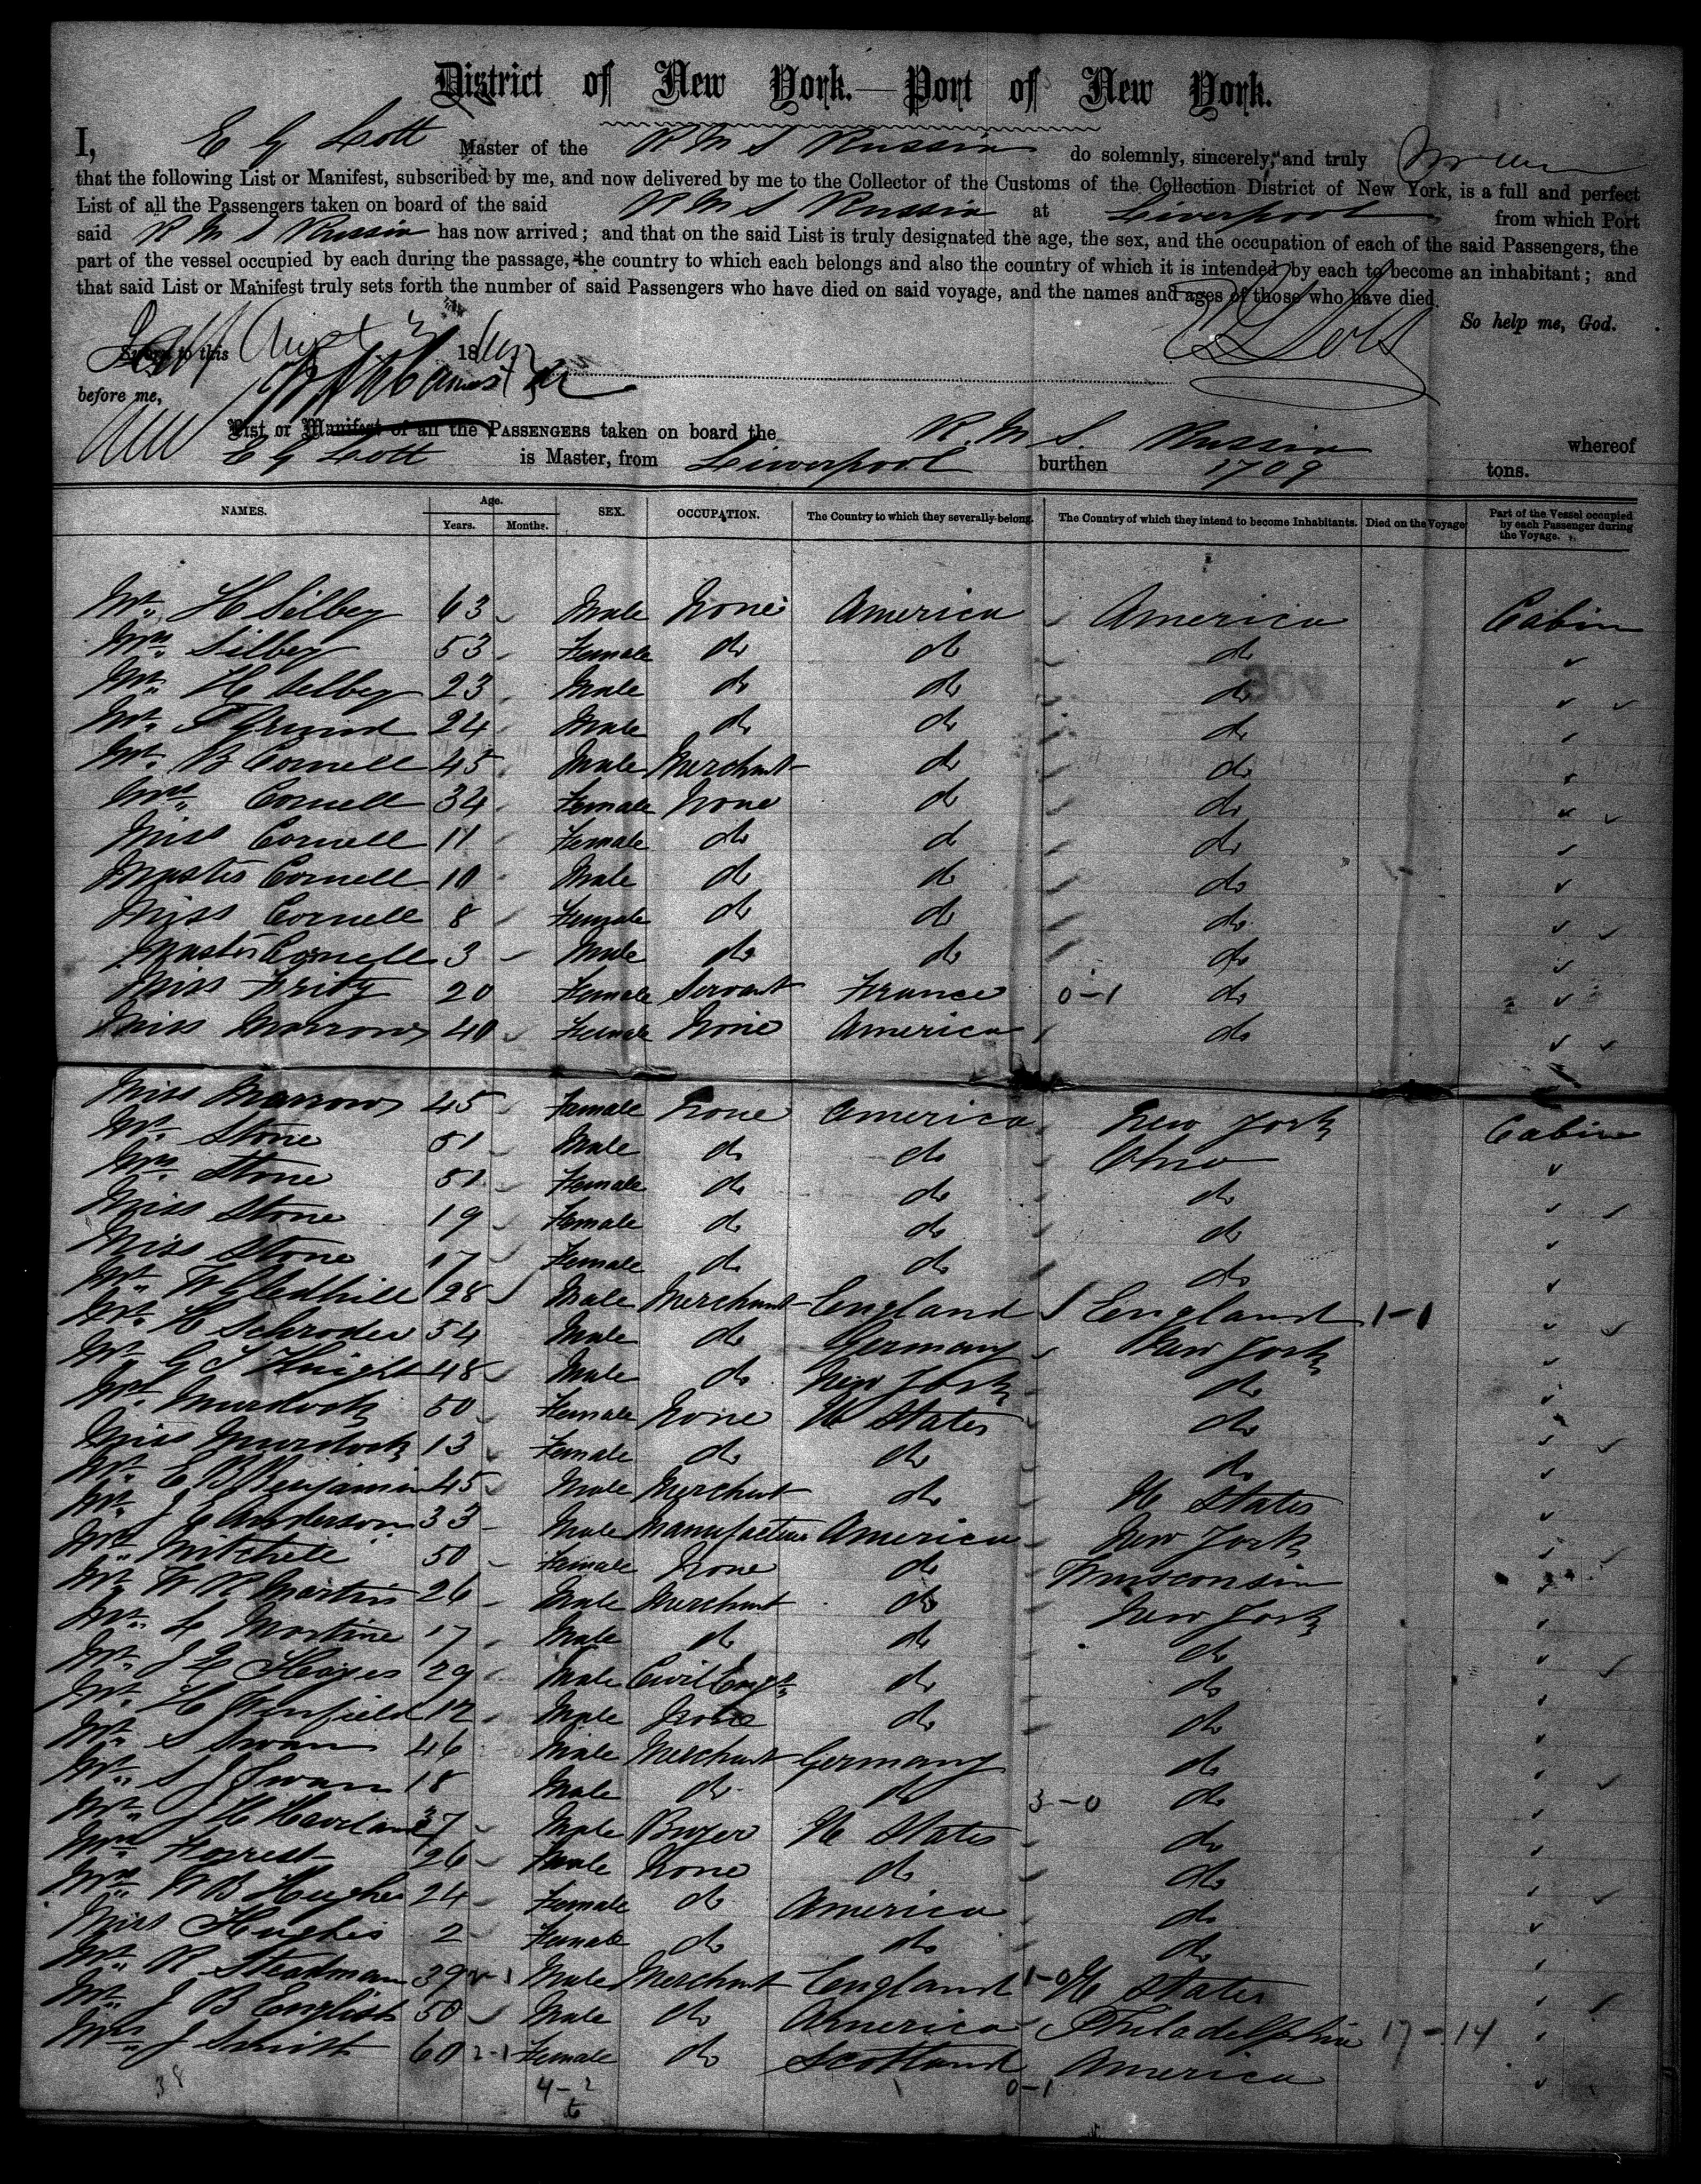 District of New York.—Port of New York.
I, E G Lott Master of the R M S Russia do solemnly, sincerely, and truly
that the following List or Manifest, subscribed by me, and now delivered by me to the Collector of the Customs of the Collection District of New York, is a full and perfect
List of all the Passengers taken on board of the said R M S Russia at Liverpool from which Port
said R M S Russia has now arrived; and that on the said List is truly designated the age, the sex, and the occupation of each of the said Passengers, the
part of the vessel occupied by each during the passage, the country to which each belongs and also the country of which it is intended by each to become an inhabitant; and
that said List or Manifest truly sets forth the number of said Passengers who have died on said voyage, and the names and ages of those who have died.
So help me, God.
Sworn to this 18
E G Lott
before me,
List or Manifest of all the PASSENGERS taken on board the R. M S. Russia whereof
E G Lott is Master, from Liverpool burthen 1709 tons.
NAMES. Age. Years. Months. SEX. OCCUPATION. The Country to which they severally belong. The Country of which they intend to become Inhabitants. Died on the Voyage Part of the Vessel occupied by each Passenger during the Voyage.
Mr. H Silbey 63 Male None America America Cabin
Mrs. Silbey 53 Female do do do
Mr. H Selbey 23 Male do do do
Mr. 24 Male do do do
Mr. B Cornell 45 Male Merchant do do
Mrs. Cornell 34 Female None do do
Miss Cornell 11 Female do do do
Master Cornell 10 Male do do do
Miss Cornell 8 Female do do do
Master Cornell 3 Male do do do
Miss 20 Female Servant France 0-1 do
Miss Marrow 40 Female None America do
Miss Marrow 45 Female None America New York Cabin
Mr. Stone 51 Male do do Ohio
Mrs. Stone 51 Female do do do
Miss Stone 19 Female do do do
Miss Stone 17 Female do do do
Mr. W Gledhill 28 Male Merchant England England 1-1
Mr. H Schroder 54 Male do Germany New York
Mr. G T Knight 48 Male do New York do
Murdock 50 Female None U States do
Miss Murdock 13 Female do do do
Mr. E B Benjamin 45 Male Merchant do U States
Mr. J E Anderson 33 Male Manufacturer America New York
Mitchell 50 Female None do Winsconsin
Mr. W R Martin 26 Male Merchant do New York
Mr. L Martine 17 Male do do do
Mr. J L Hayes 29 Male Civil Engr. do do
Mr. H Winfield 12 Male None do do
Mr. S Swan 46 Male Merchant Germany do
Mr. S J Swan 18 Male do do 3-0 do
Mr. J H Haviland 37 Male Buyer U States do
Forrest 26 Male None do do
Mrs. W B Hughes 24 Female do America do
Miss Hughes 2 Female do do do
Mr. R Steadman 39 Male Merchant England 1-0 U States
Mr. J B English 50 Male do America Philadelphia 17-14
Mrs. J Smith 60 2-1 Female do Scotland America
38 4-2 0-1
6